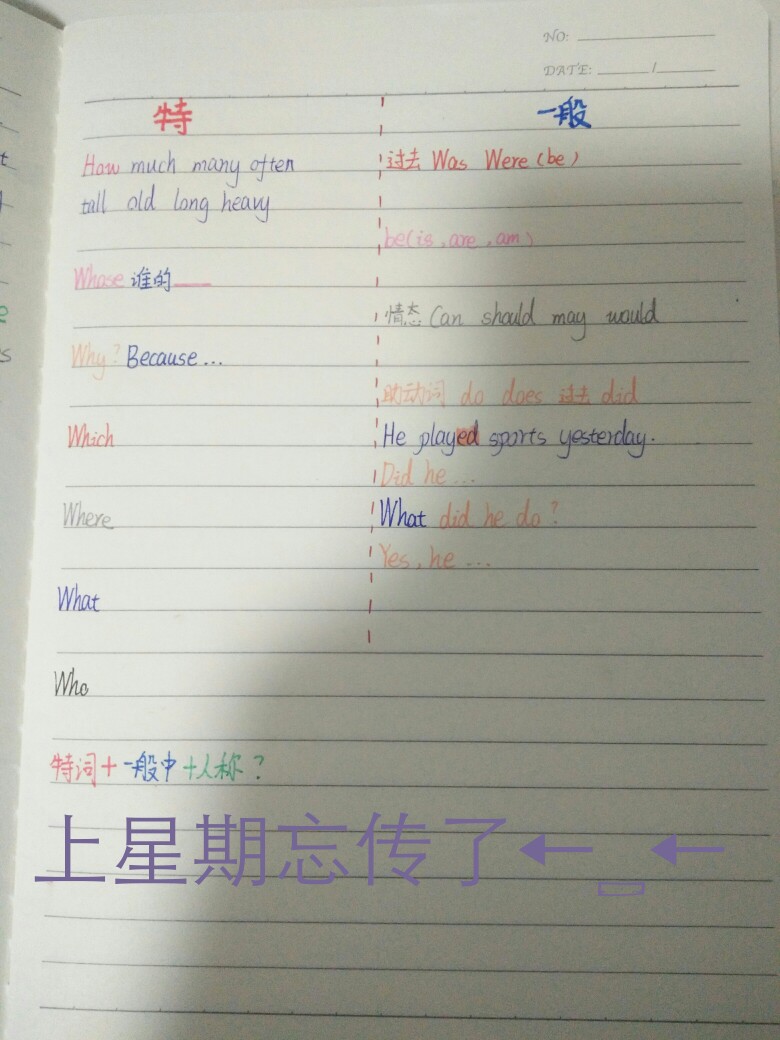 NO:
DATE: /
特
How much many often
tall old long heavy
Whose 谁的
Why? Because...
Which
Where
What
Who
一般
过去 Was Were (be)
be(is, are, am)
情态 Can should may would
助动词 do does 过去 did
He played sports yesterday.
Did he...
What did he do?
Yes, he...
特词+一般中+人称?
上星期忘传了←_←